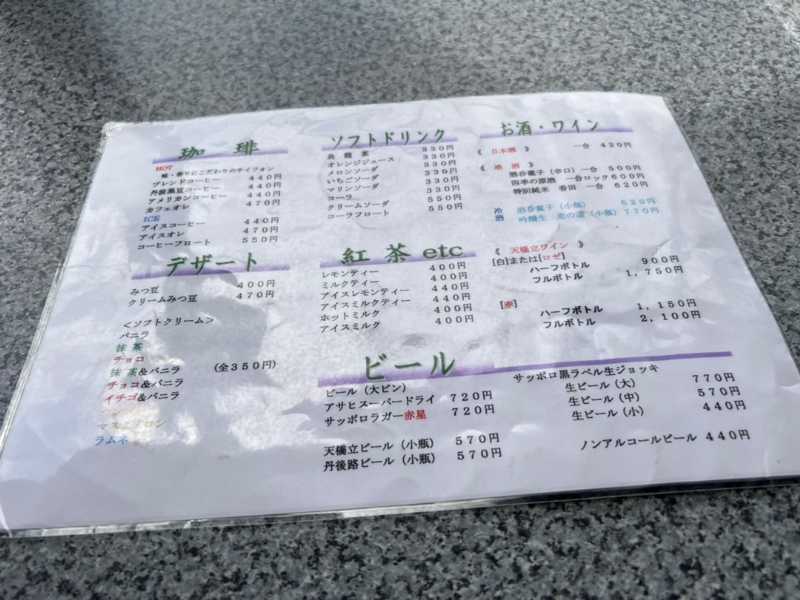 珈琲
HOT
ブレンドコーヒー 440円
丹波黒豆コーヒー 440円
アメリカンコーヒー 440円
カフェオレ 470円
ICE
アイスコーヒー 440円
アイスオレ 470円
コーヒーフロート 550円
デザート
みつ豆 400円
クリームみつ豆 470円
<ソフトクリーム>
バニラ
抹茶
チョコ
抹茶&バニラ (全350円)
チョコ&バニラ
イチゴ&バニラ
ラムネ
ソフトドリンク
烏龍茶 330円
オレンジジュース 330円
メロンソーダ 330円
いちごソーダ 330円
マリンソーダ 330円
コーラ 330円
クリームソーダ 550円
コーラフロート 550円
紅茶 etc
レモンティー 400円
ミルクティー 400円
アイスレモンティー 440円
アイスミルクティー 440円
ホットミルク 400円
アイスミルク 400円
お酒・ワイン
《 日本酒 》 一合 420円
《 地酒 》
酒呑童子 (辛口) 一合 500円
四季の原酒 一合ロック600円
特別純米 香田 一合 620円
冷酒 酒呑童子 (小瓶) 620円
(小瓶) 770円
《 天橋立ワイン 》
[白]または[ロゼ]
ハーフボトル 900円
フルボトル 1,750円
[赤]
ハーフボトル 1,150円
フルボトル 2,100円
ビール
ビール (大ビン)
アサヒスーパードライ 720円
サッポロラガー赤星 720円
天橋立ビール (小瓶) 570円
丹後路ビール (小瓶) 570円
サッポロ黒ラベル生ジョッキ
生ビール (大) 770円
生ビール (中) 570円
生ビール (小) 440円
ノンアルコールビール 440円